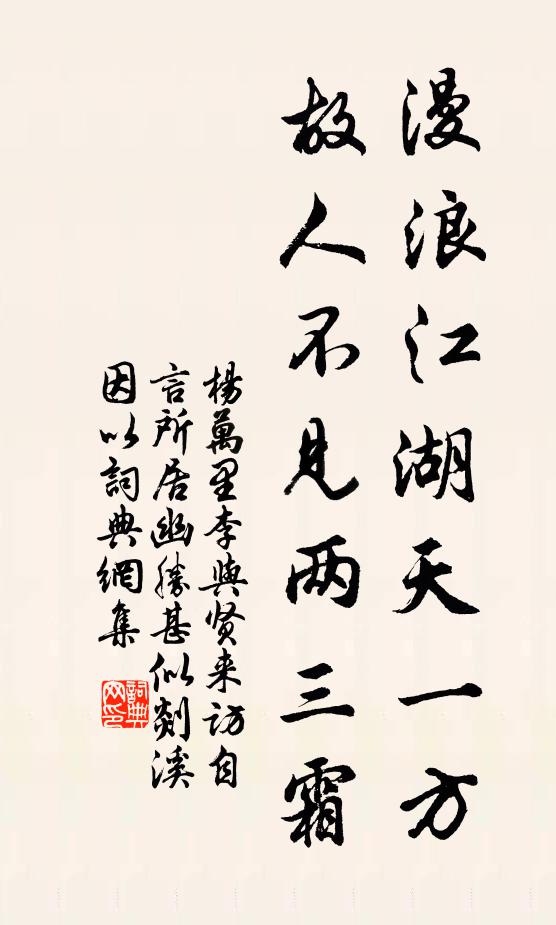 漫浪江湖天一方
故人不见两三霜
楊萬里李與贤来访自
言所居幽勝甚似剡溪
因以詞典網集
詞典网印